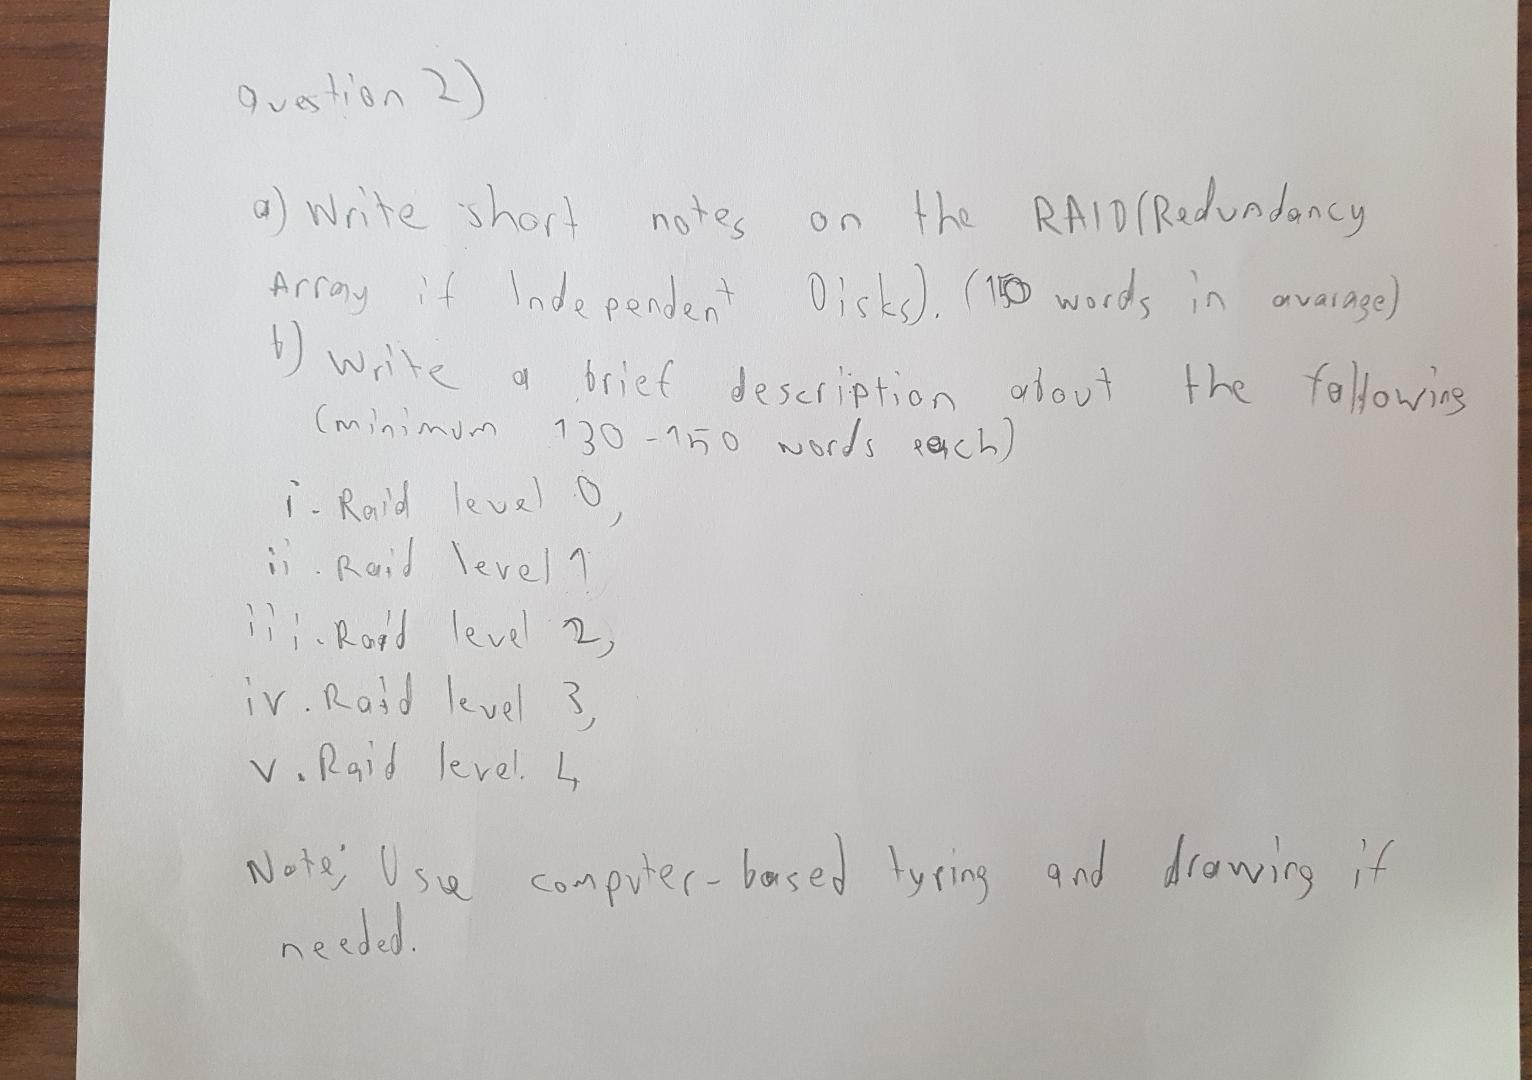 Question 2)
a) Write short notes on the RAID(Redundancy
Array if Independent Disks). (150 words in avarage)
b) Write a brief description about the following
(minimum 130-150 words each)
i. Raid level 0,
ii. Raid level 1
iii. Raid level 2,
iv. Raid level 3,
v. Raid level. 4
Note; Use computer-based typing and drawing if
needed.